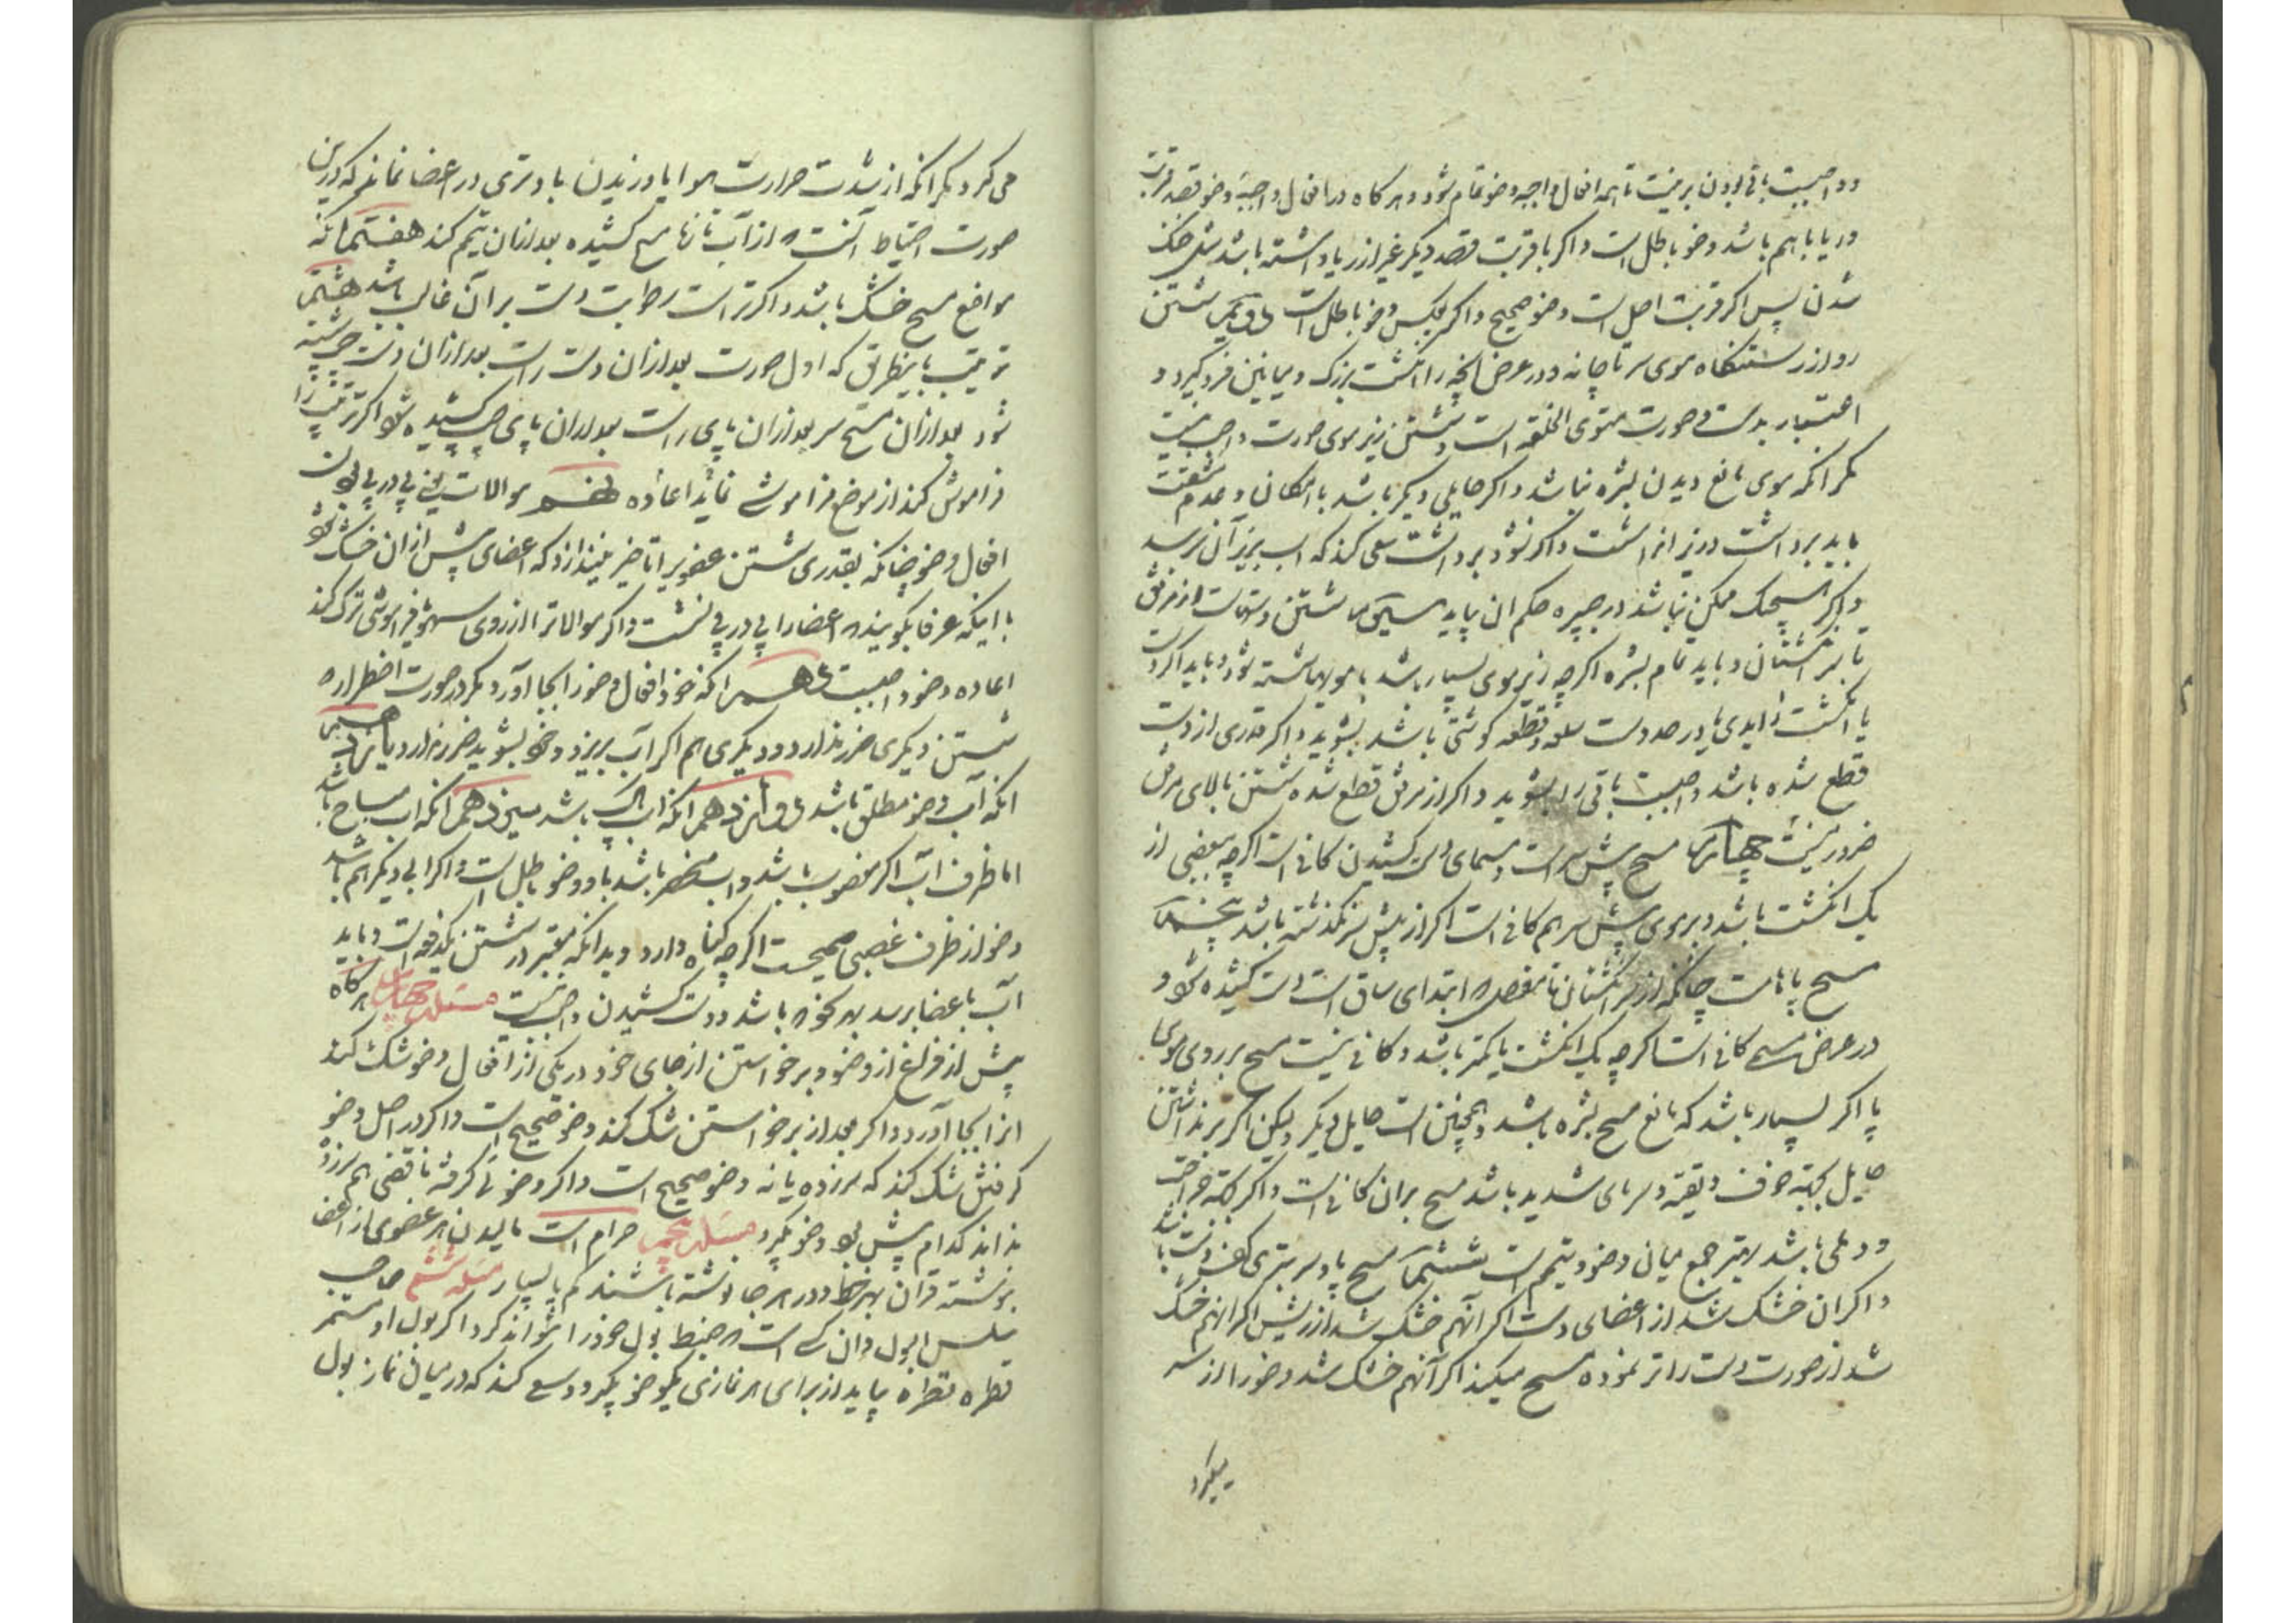 و واجبست باقی بودن بر نیت تا همه افعال واجبه وضو تمام شود و هرگاه در افعال واجبه وضو قصد قربت
و ریا باهم باشد وضو باطل است و اگر با قربت قصد دیگر غیر از ریا داشته باشد مثل خنک
شدن پس اگر قربت اصل است وضو صحیح و اگر بعکس وضو باطل است دویم شستن
رو از رستنگاه موی سر تا چانه و در عرض آنچه را انگشت بزرگ و میانین فرو گیرد و
اعتبار بدست و صورت مستوی الخلقه است و شستن زیر موی صورت واجب نیست
مگر آنکه موی مانع دیدن بشره نباشد و اگر حایلی دیگر باشد با امکان و عدم مشقت
باید برداشت و زیر انرا شست و اگر نشود برداشت سعی کند که آب بزیر آن برسد
و اگر هیچیک ممکن نباشد در جبیره حکم ان بیاید سیم شستن دستهاست از مرفق
تا سر انگشتان و باید تمام بشره اگرچه زیر موی بسیار باشد با مویها شسته شود و باید اگر دست
یا انگشت زایدی یا در حد دست سلعه و قطعه گوشتی باشد بشوید و اگر قدری از دست
قطع شده باشد واجبست باقی را بشوید و اگر از مرفق قطع شده شستن بالای مرفق
ضرور نیست چهارم مسح پیش سر است و مسمای دست کشیدن کافی است اگرچه ببعضی از
یک انگشت باشد و بر موی پیش سر هم کافی است اگر از پیش سر نگذشته باشد پنجم
مسح پاهاست چنانکه از سر انگشتان تا مفصل که ابتدای ساق است دست کشیده شود و
در عرض مسح کافی است اگرچه یک انگشت یا کمتر باشد و کافی نیست مسح بر روی موی
پا اگر بسیار باشد که مانع مسح بشره باشد و همچنین است حایل دیگر و لیکن اگر برنداشتن
حایل بجهة خوف و تقیه و سرمای شدید باشد مسح بر ان کافی است و اگر بجهة جراحت
و دملی باشد بهتر جمع میان وضو و تیمم است ششم مسح پا و سر بتری کف دست باشد
و اگر ان خشک شد از اعضای دست اگر آنهم خشک شد از ریش اگر انهم خشک
شد از صورت دست را تر نموده مسح میکند اگر آنهم خشک شد وضو را از سر
میگیرد
می گیرد مگر آنکه از شدت حرارت هوا یا وزیدن باد تری در اعضا نماند که درین
صورت احتیاط آنست که از آب تازه مسح کشیده بعد ازان تیمم کند هفتم آنکه
مواضع مسح خشک باشد و اگر تر است رطوبت دست بر آن غالب باشد هشتم
ترتیب باینطریق که اول صورت بعد ازان دست راست بعد ازان دست چپ شسته
شود بعد ازان مسح سر بعد ازان پای راست بعد ازان پای چپ کشیده شود اگر ترتیب را
فراموش کند از موضع فراموشی نماید اعاده نهم موالات یعنی پی در پی بودن
افعال وضو چنانکه بقدری شستن عضویرا تاخیر نیندازد که اعضای پیش ازان خشک شود
با اینکه عرفا بگویند که اعضا را پی در پی نشست و اگر موالات را از روی سهو فراموشی ترک کند
اعاده وضو واجبست دهم آنکه خود افعال وضو را بجا آورد مگر در صورت اضطرار که
شستن دیگری ضرر ندارد و دیگری هم اگر آب بریزد و خود بشوید ضرر ندارد یازدهم
آنکه آب وضو مطلق باشد دوازدهم آنکه آب پاک باشد سیزدهم آنکه اب مباح باشد
اما ظرف آب اگر مغصوب باشد و آب منحصر باشد باو وضو باطل است و اگر ابی دیگر هم باشد
وضو از ظرف غصبی صحیحست اگرچه گناه دارد و بدانکه معتبر در شستن یکدفعه است و باید
آب باعضا برسد بهر نحو که باشد و دست کشیدن واجب نیست مسئله چهارم هرگاه
پیش از فراغ از وضو و برخواستن از جای خود در یکی از افعال وضو شک کند
انرا بجا آورد و اگر بعد از برخواستن شک کند وضو صحیح است و اگر در اصل وضو
گرفتن شک کند که سرزده یا نه وضو صحیح است و اگر وضوئی گرفته ناقضی هم سرزده
نداند کدام پیش بود وضو بگیرد مسئله پنجم حرام است مالیدن هر عضوی از اعضا
بنوشته قران بهر خط و در هر جا نوشته باشند کم یا بسیار مسئله ششم صاحب
سلس البول و ان کسی است که ضبط بول خود را نتواند کرد اگر بول او مستمر
قطره قطره بیاید از برای هر نمازی یکوضو بگیرد و سعی کند که در میان نماز بول